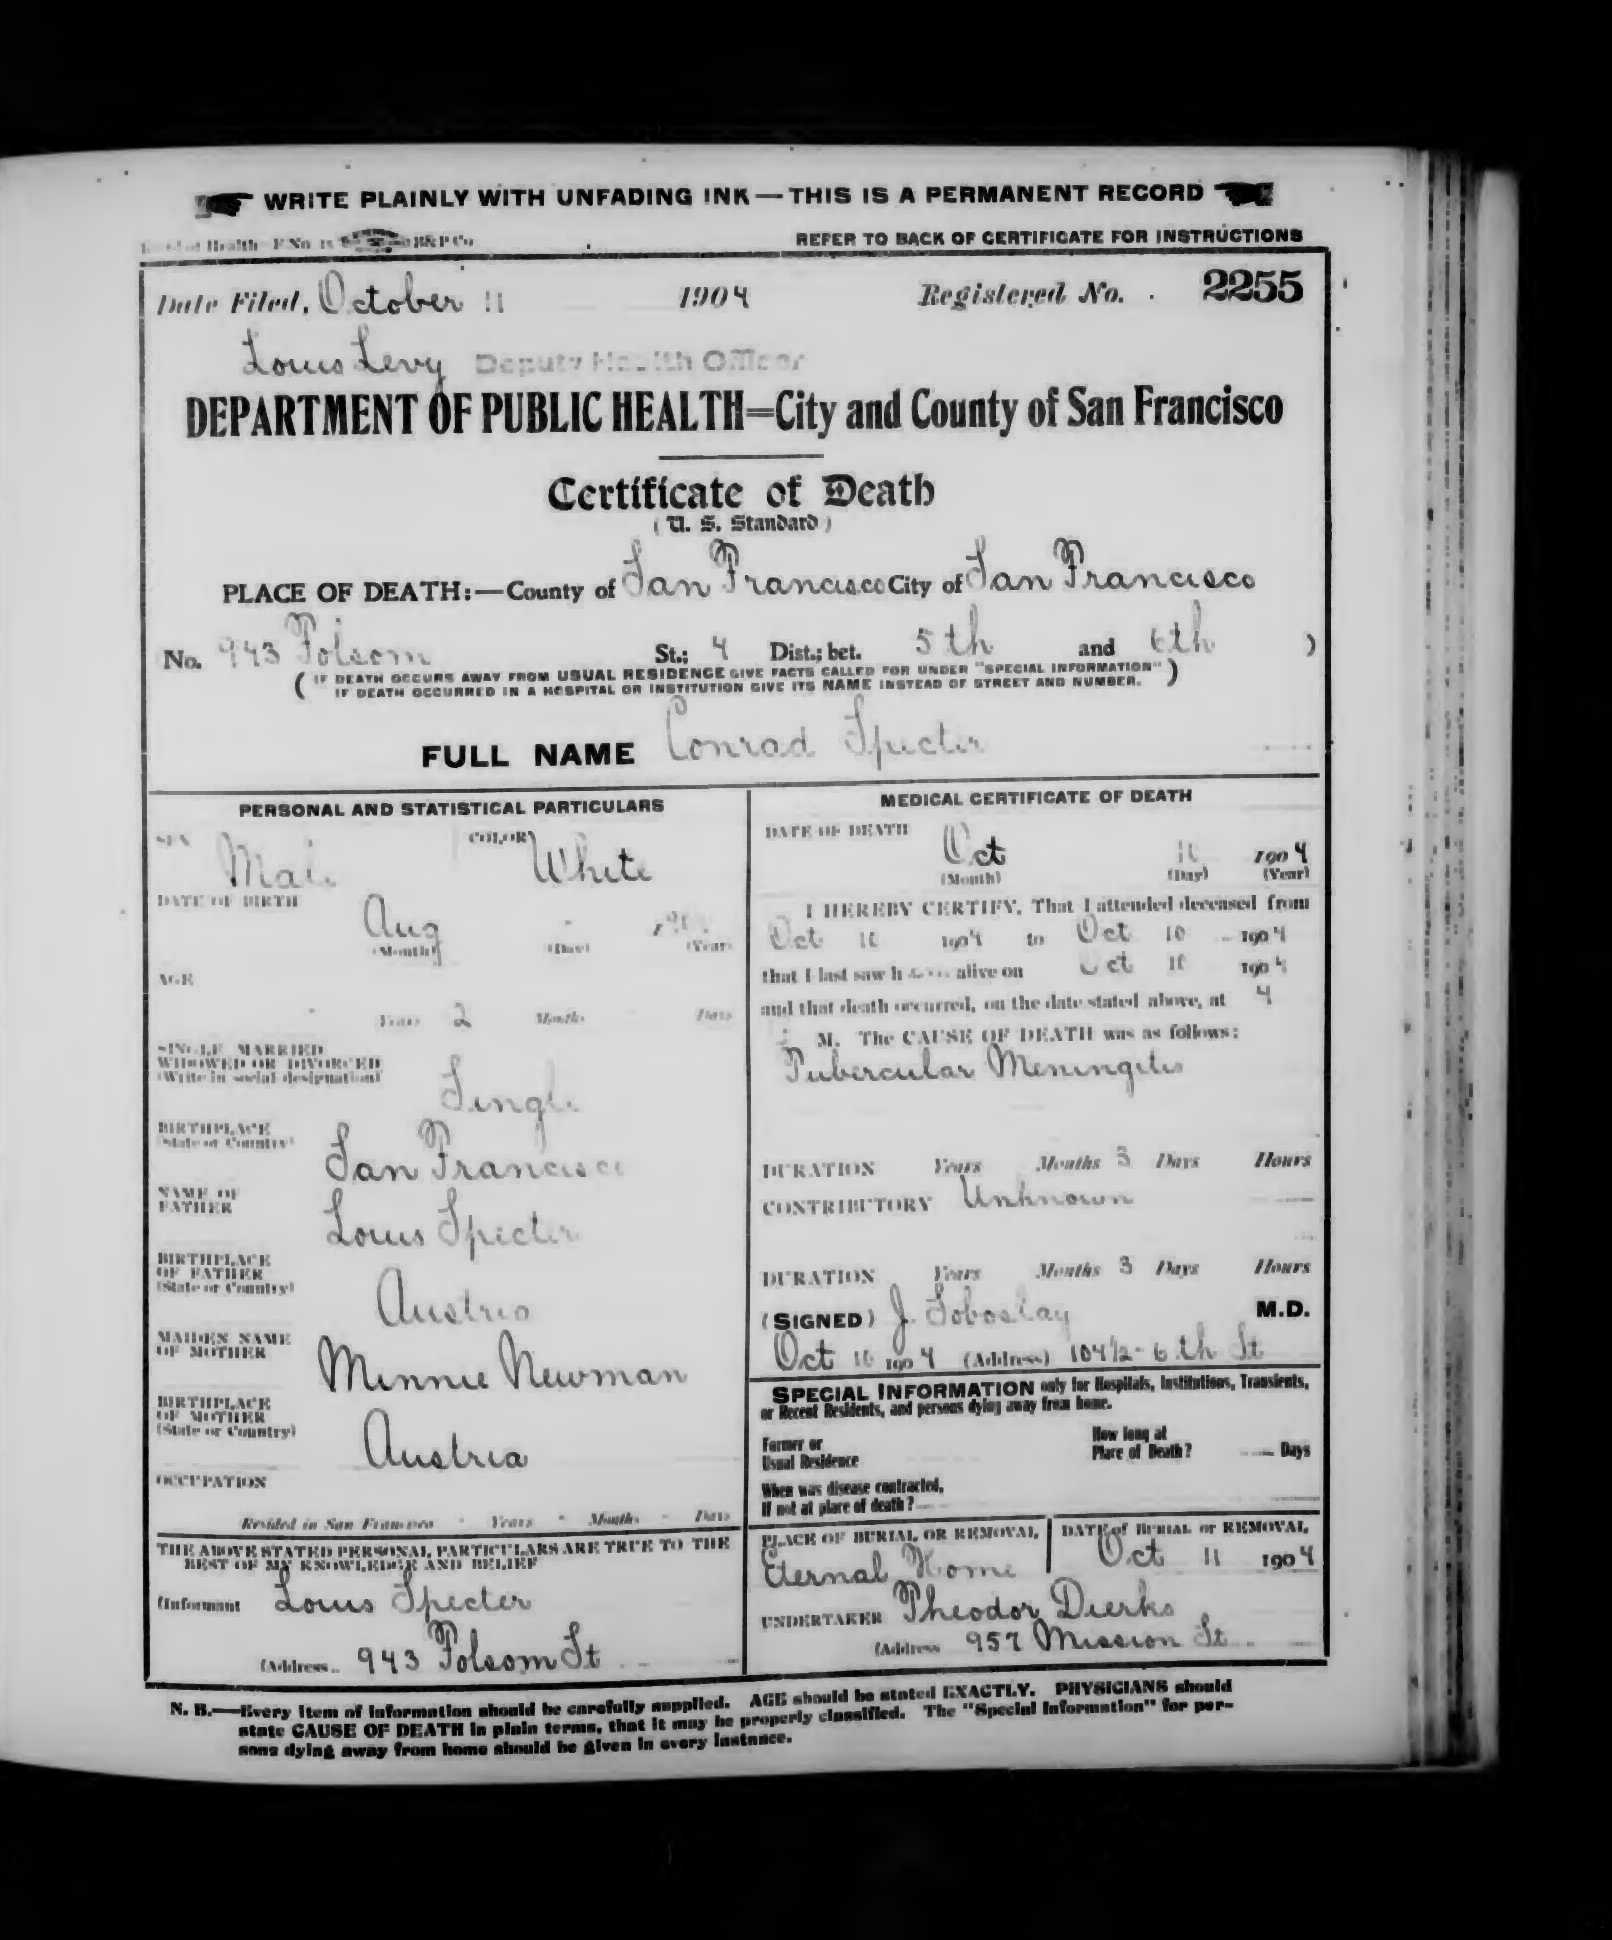 WRITE PLAINLY WITH UNFADING INK — THIS IS A PERMANENT RECORD
Health F No. 15 B&P Co
REFER TO BACK OF CERTIFICATE FOR INSTRUCTIONS
Date Filed, October 11 1904 Registered No. 2255
Louis Levy Deputy Health Officer
DEPARTMENT OF PUBLIC HEALTH=City and County of San Francisco
Certificate of Death
(U. S. Standard)
PLACE OF DEATH:—County of San Francisco City of San Francisco
No. 943 Folsom St.; 4 Dist.; bet. 5th and 6th )
( IF DEATH OCCURS AWAY FROM USUAL RESIDENCE GIVE FACTS CALLED FOR UNDER "SPECIAL INFORMATION"
IF DEATH OCCURRED IN A HOSPITAL OR INSTITUTION GIVE ITS NAME INSTEAD OF STREET AND NUMBER. )
FULL NAME Conrad Specter
PERSONAL AND STATISTICAL PARTICULARS
SEX Male COLOR White
DATE OF BIRTH
Aug
(Month) (Day) (Year)
AGE
Years 2 Months Days
SINGLE MARRIED
WIDOWED OR DIVORCED
(Write in social designation)
Single
BIRTHPLACE
(State or Country)
San Francisco
NAME OF
FATHER
Louis Specter
BIRTHPLACE
OF FATHER
(State or Country)
Austria
MAIDEN NAME
OF MOTHER
Minnie Newman
BIRTHPLACE
OF MOTHER
(State or Country)
Austria
OCCUPATION
Resided in San Francisco Years Months Days
THE ABOVE STATED PERSONAL PARTICULARS ARE TRUE TO THE
BEST OF MY KNOWLEDGE AND BELIEF
(Informant Louis Specter
(Address 943 Folsom St
MEDICAL CERTIFICATE OF DEATH
DATE OF DEATH
Oct 1904
(Month) (Day) (Year)
I HEREBY CERTIFY, That I attended deceased from
Oct 1904 to Oct 10 1904
that I last saw h alive on Oct 1904
and that death occurred, on the date stated above, at 4
M. The CAUSE OF DEATH was as follows:
Tubercular Meningitis
DURATION Years Months 3 Days Hours
CONTRIBUTORY Unknown
DURATION Years Months 3 Days Hours
(SIGNED) J. Soboslay M.D.
Oct 10 1904 (Address) 104½- 6th St
SPECIAL INFORMATION only for Hospitals, Institutions, Transients,
or Recent Residents, and persons dying away from home.
Former or
Usual Residence
How long at
Place of Death? Days
When was disease contracted,
If not at place of death?
PLACE OF BURIAL OR REMOVAL
Eternal Home
DATE of BURIAL or REMOVAL
Oct 11 1904
UNDERTAKER Theodor Dierks
(Address 957 Mission St
N. B.—Every item of information should be carefully supplied. AGE should be stated EXACTLY. PHYSICIANS should
state CAUSE OF DEATH in plain terms, that it may be properly classified. The "Special Information" for per-
sons dying away from home should be given in every instance.